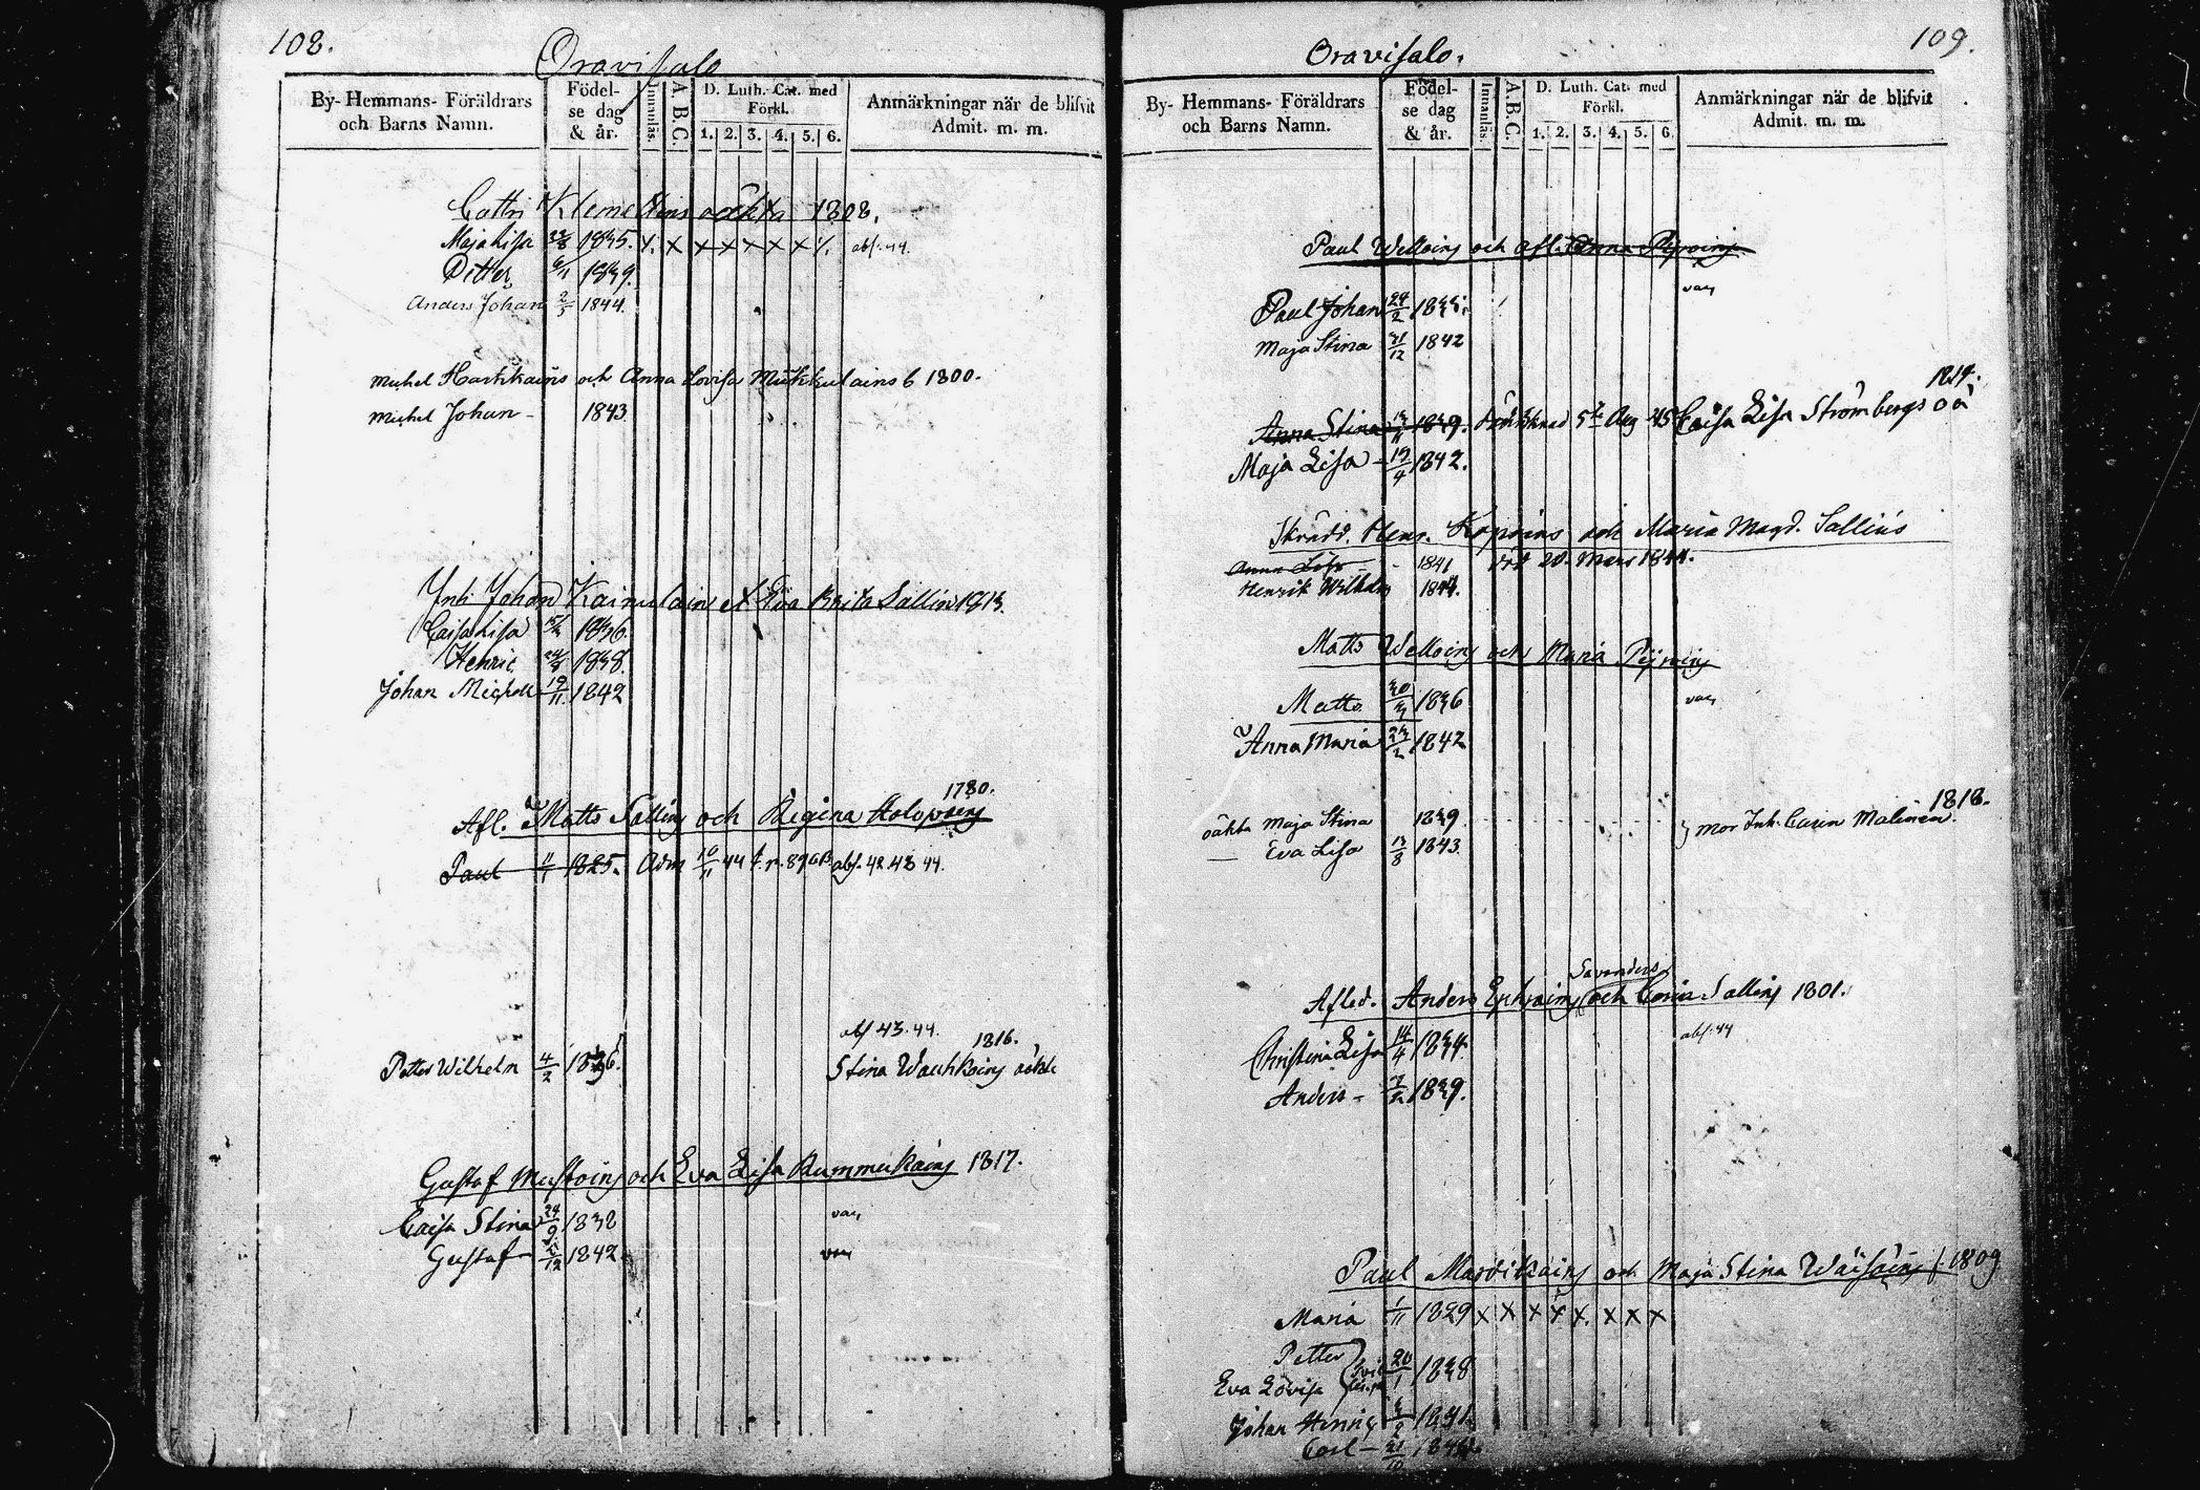 108.
Oravisalo
By- Hemmans- Föräldrars och Barns Namn.
Födel- se dag & år.
Innanläs.
A. B. C.
D. Luth. Cat. med Förkl.
1. 2. 3. 4. 5. 6.
Anmärkningar när de blifvit Admit. m. m.
Cattri Klemettins oäkta 1808.
Maja Lisa 1835. abs. 44.
Petter 1839.
Anders Johan 2/5 1844.
Michel Hartikains och Anna Lovisa Mukkulains 6 1800.
Michel Johan - 1843
Inh. Johan Kainulain & Eva Brita Sallin 1813.
Caisa Lisa 1836.
Henric 1838.
Johan Michell 19/11 1842
1780.
Afl. Matts Sallins och Regina Holopains
Paul 11/1 1825. Adm 10/11 44 abs. 42 43 44.
abs 43. 44. 1816.
Petter Wilhelm 4/2 1836. Stina Wauhkoins oäkta
Gustaf Mustoins och Eva Lisa Kummukains 1817.
Caisa Stina 24/9 1838 vac,
Gustaf 1842 vac
109.
Oravisalo.
By- Hemmans- Föräldrars och Barns Namn.
Födel- se dag & år.
Innanläs.
A. B. C.
D. Luth. Cat. med Förkl.
1. 2. 3. 4. 5. 6.
Anmärkningar när de blifvit Admit. m. m.
Paul och afl. Anna
vac,
Paul Johan 24/2 1835.
Maja Stina 31/12 1842
1819.
Anna Stina 1839. 5te Aug 45 Caisa Lisa Strömbergs oä
Maja Lisa - 19/4 1842.
Skrädd. Henr. Kopoins och Maria Magd. Sallins
Anna Lisa - 1841 död 20. Mars 1844.
Henrik Wilhelm 1844.
Matts och Maria
Matts 30/3 1836 vac,
Anna Maria 23/2 1842
1818.
oäkta Maja Stina 1839 mor Inh. Carin Malinen.
— Eva Lisa 13/8 1843.
Savanders
Afled. Anders Ephraims och Carin Sallins 1801.
Christina Lisa 14/4 1834. abs. 44
Anders - 1839.
Paul Mardikains och Maja Stina Wäisäins f. 1809
Maria 1/11 1829 x x x x x x x x
Petter
Eva Lovisa 20/1 1838
Johan Henric 3/2 1841
Carl - 21/10